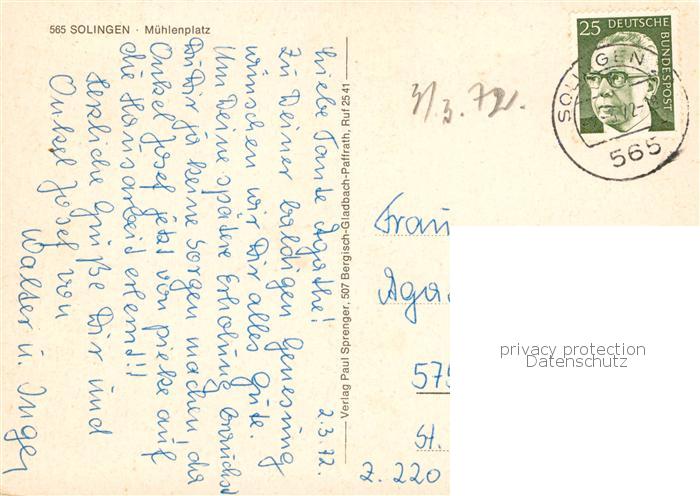 565 SOLINGEN · Mühlenplatz
2.3.72.
Liebe Tante Agathe!
Zu Deiner baldigen Genesung
wünschen wir Dir alles Gute.
Um Deine spätere Erholung brauchst
Du Dir ja keine Sorgen machen, da
Onkel Josef jetzt von pieke auf
die Hausarbeit erlernt!!
Herzliche Grüße Dir und
Onkel Josef von
Walter u. Inger
Verlag Paul Sprenger, 507 Bergisch-Gladbach-Paffrath, Ruf 2541
3/3.72.
25 DEUTSCHE BUNDESPOST
SOLINGEN
565
Frau
Aga
575
St.
Z. 220
privacy protection
Datenschutz